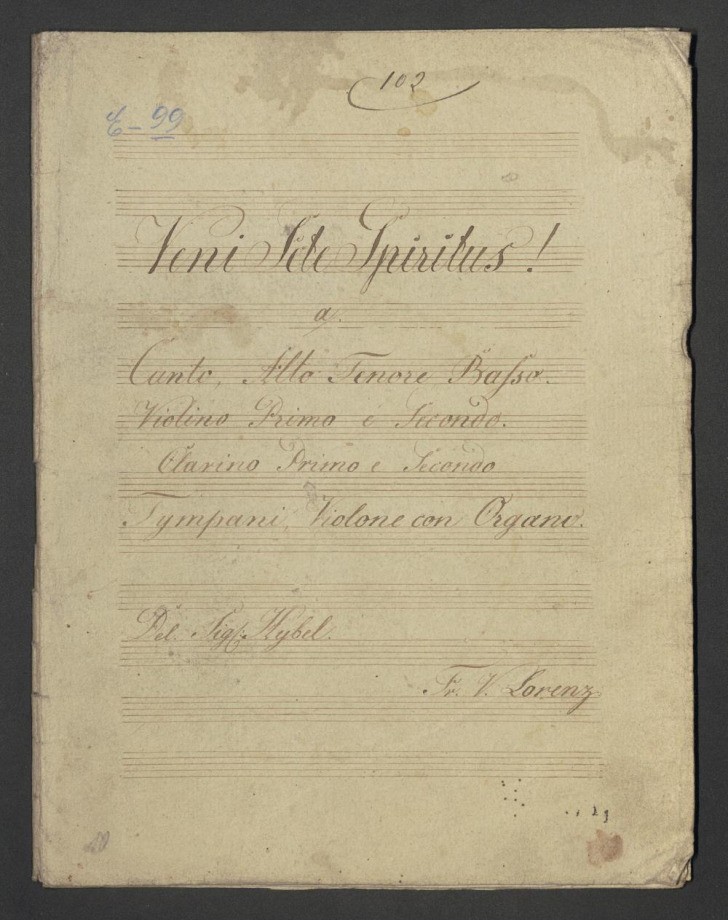 102
E-99
Veni Scte Spiritus!
a.
Canto, Alto Tenore Basso.
Violino Primo e Secondo.
Clarino Primo e Secondo
Tympani, Violone con Organo.
Del. Sigr. Hybel.
Fr. V. Lorenz